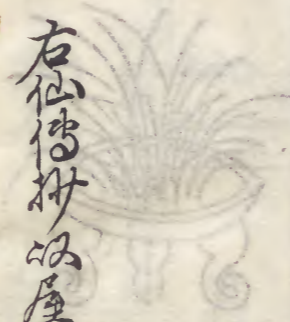 右仙傳抄以屋